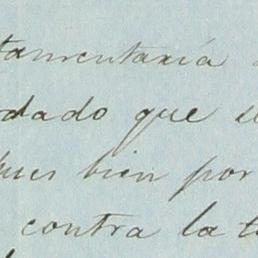 tamentaría
dado que
pues bien por
contra la